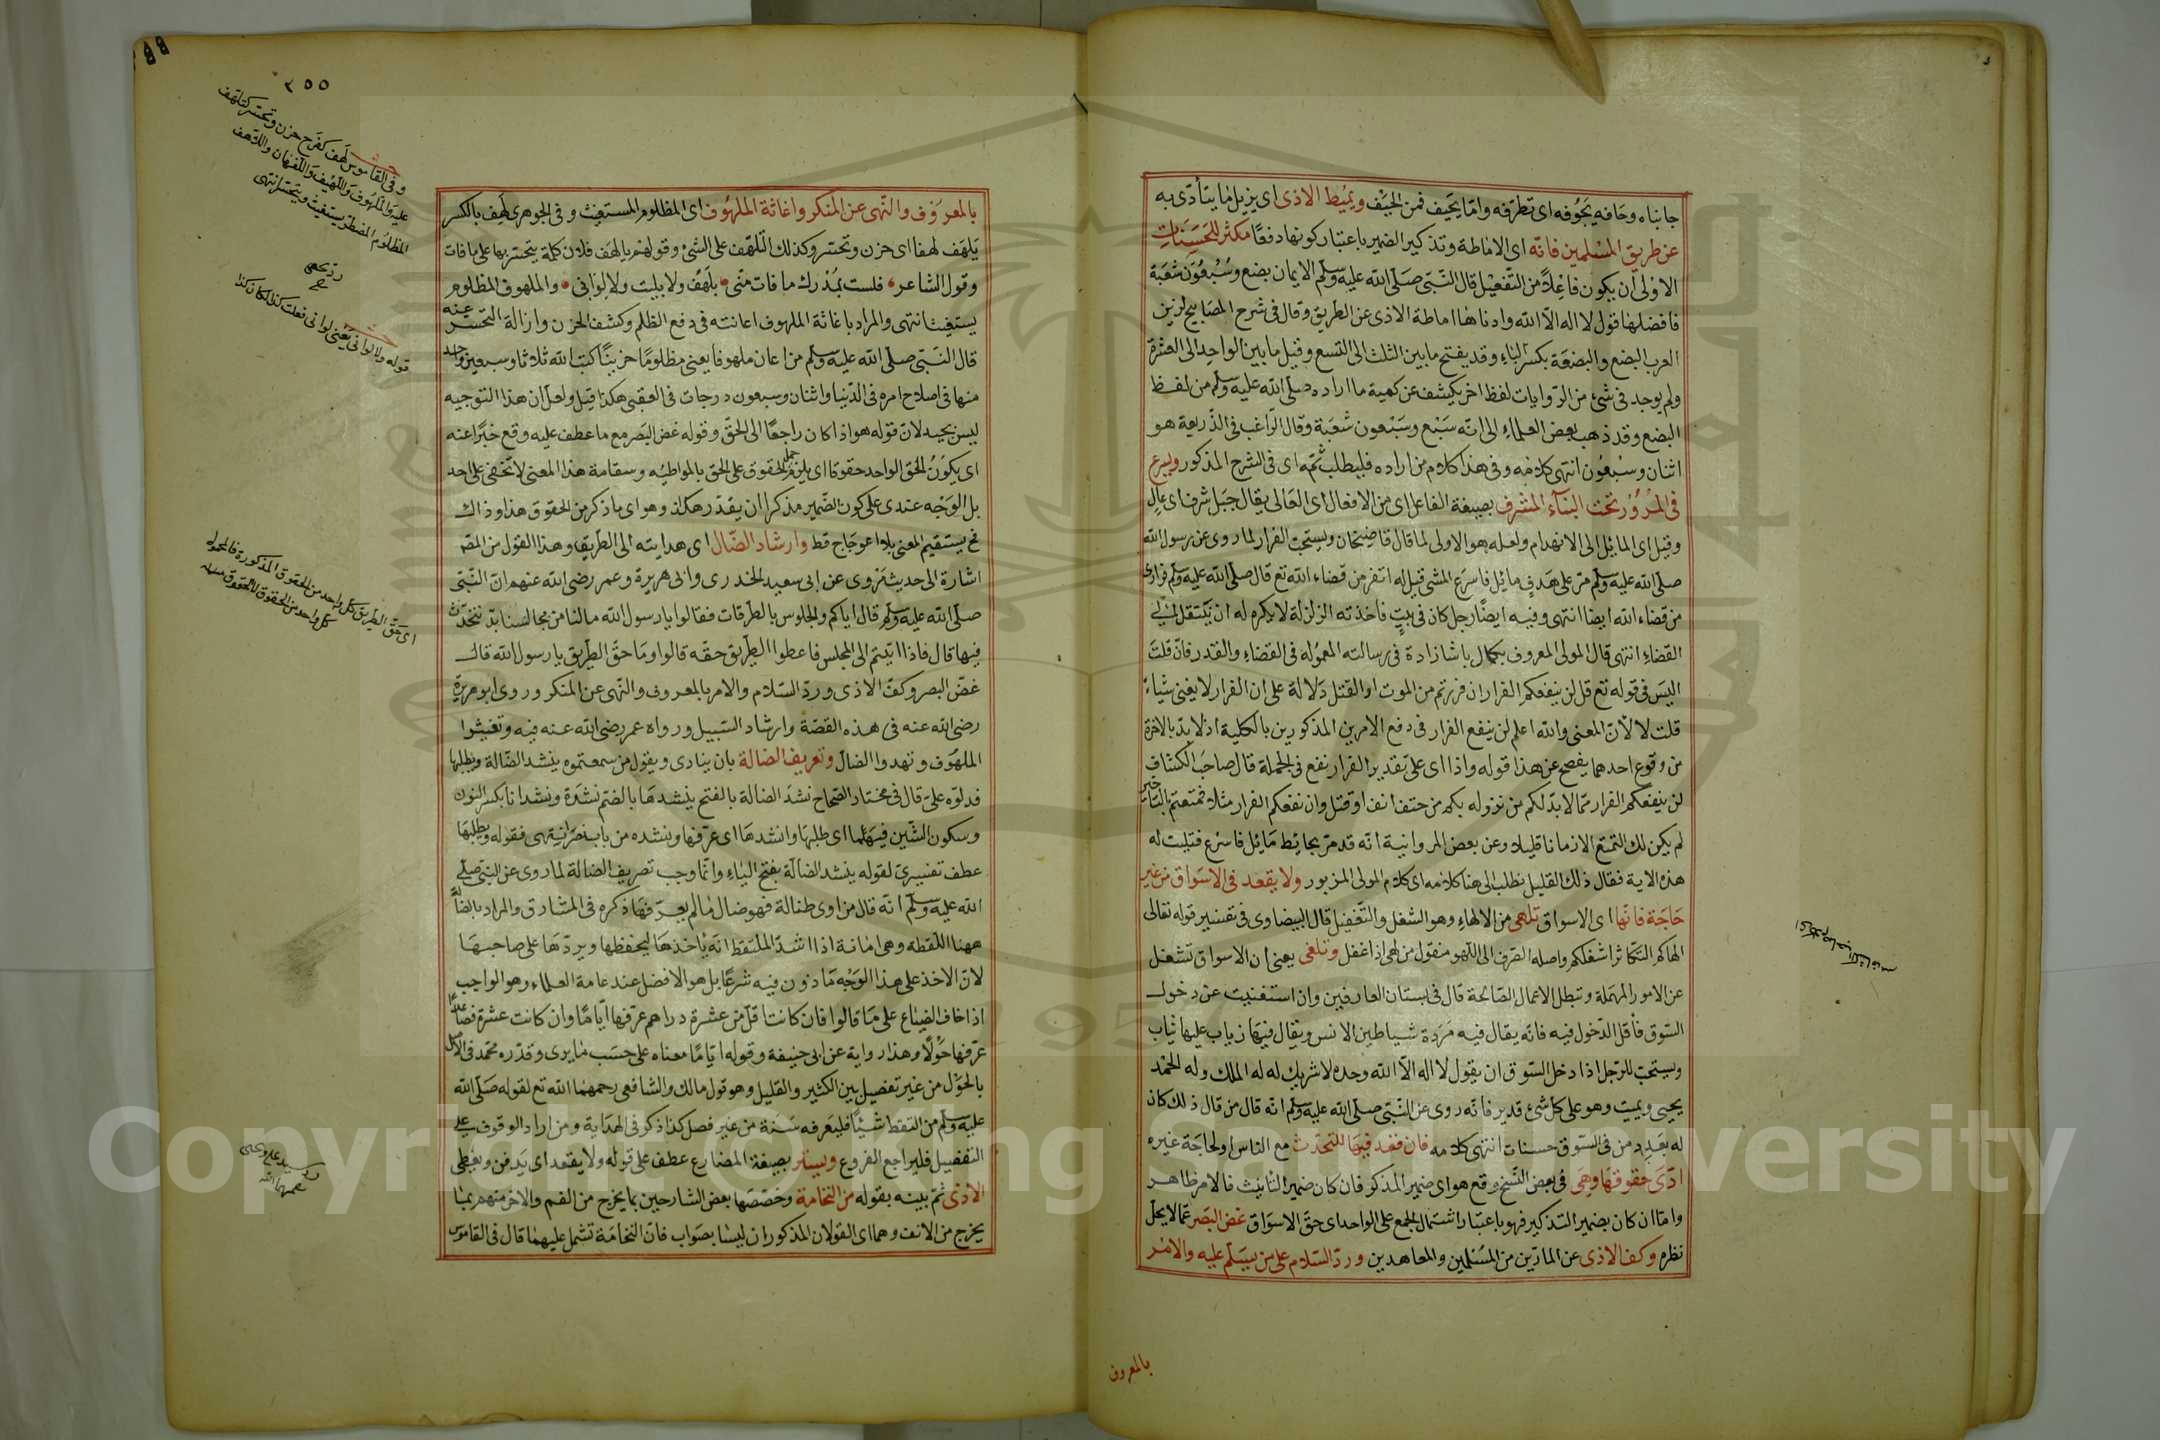 جانباه وحافه يجوفه اى تطرفه واما يحيف فمن الحيف ويميط الاذى اى يزيل ما يتأذى به
عن طريق المسلمين فانه اى الاماطة وتذكير الضمير باعتبار كونها دفعا مكثر للحسنات
الاولى ان يكون فاعلا من التفعيل قال النبى صلى الله عليه وسلم الايمان بضع وسبعون شعبة
فافضلها قول لا اله الا الله وادناها اماطة الاذى عن الطريق وقال فى شرح المصابيح لزين
العرب البضع والبضعة بكسر الباء وقد يفتح ما بين الثلث الى التسع وقيل ما بين الواحد الى العشرة
ولم يوجد فى شئ من الروايات لفظ اخر يكشف عن كمية ما اراده صلى الله عليه وسلم من لفظ
البضع وقد ذهب بعض العلماء الى انه سبع وسبعون شعبة وقال الراغب فى الذريعة هو
اثنان وسبعون انتهى كلامه وفى هذا كلام من اراده فليطلب ثمه اى فى الشرح المذكور ويسرع
فى المرور تحت البناء المشرف بصيغة الفاعل اى من الافعال اى العالى يقال جبل شرف اى عال
وقيل اى المائل الى الانهدام ولعله هو الاولى لما قال قاضيخان ويستحب الفرار لما روى عن رسول الله
صلى الله عليه وسلم مر على هدف مائل فاسرع المشى قيل له اتفر من قضاء الله تع قال صلى الله عليه وسلم فرارى
من قضاء الله ايضا انتهى وفيه ايضا رجل كان فى بيت فاخذته الزلزلة لا يكره له ان ينتقل الى
القضاء انتهى قال المولى المعروف بكمال باشازادة فى رسالته المعموله فى القضاء والقدر فان قلت
اليس فى قوله تع قل لن ينفعكم الفرار ان فررتم من الموت او القتل دلالة على ان الفرار لا يغنى شياء
قلت لا لان المعنى والله اعلم لن ينفع الفرار فى دفع الامرين المذكورين بالكلية اذ لا بد بالاخرة
من وقوع احدهما يفصح عن هذا قوله واذا اى على تقدير الفرار نفع فى الجملة قال صاحب الكشاف
لن ينفعكم الفرار مما لا بد لكم من نزوله بكم من حتف انف او قتل وان نفعكم الفرار مثلا فمتعتم بالتأخير
لم يكن لك التمتع الا زمانا قليلا وعن بعض المروانية انه قد مر بحائط مائل فاسرع فتليت له
هذه الاية فقال ذلك القليل نطلب الى هنا كلامه اى كلام المولى المزبور ولا يقعد فى الاسواق من غير
حاجة فانها اى الاسواق تلهى من الالهاء وهو الشغل والتغفيل قال البيضاوى فى تفسير قوله تعالى
الهاكم التكاثر اشغلكم واصله الصرف الى اللهو منقول من لهى اذا غفل وتلغى يعنى ان الاسواق تشغل
عن الامور المهمة وتبطل الاعمال الصالحة قال فى بستان العارفين وان استغنيت عن دخول
السوق فاقل الدخول فيه فانه يقال فيه مردة شياطين الانس ويقال فيها ذياب عليها ثياب
ويستحب للرجل اذا دخل السوق ان يقول لا اله الا الله وحده لا شريك له له الملك وله الحمد
يحيى ويميت وهو على كل شئ قدير فانه روى عن النبى صلى الله عليه وسلم انه قال من قال ذلك كان
له بعدد من فى السوق حسنات انتهى كلامه فان قعد فيها للتحدث مع الناس او لحاجة غيره
ادى حقوقها وهى فى بعض النسخ وقع هو اى ضمير المذكر فان كان ضمير التأنيث فالامر ظاهر
واما ان كان بضمير التذكير فهو باعتبار اشتمال الجمع على الواحد اى حق الاسواق غض البصر عما لا يحل
نظره وكف الاذى عن المارين من المسلمين والمعاهدين ورد السلام على من يسلم عليه والامر
بالمعروف
اى كلام صاحب الكشاف منه
٢٥٥
بالمعروف والنهى عن المنكر واغاثة الملهوف اى المظلوم المستغيث وفى الجوهرى لهف بالكسر
يلهف لهفا اى حزن وتحسر وكذلك التلهف على الشئ وقولهم يا لهف فلان كلمة يتحسر بها على ما فات
وقول الشاعر فلست بمدرك ما فات منى بلهف ولا بليت ولا لو انى والملهوف المظلوم
يستغيث انتهى والمراد باغاثة الملهوف اعانته فى دفع الظلم وكشف الحزن وازالة التحسر عنه
قال النبى صلى الله عليه وسلم من اعان ملهوفا يعنى مظلوما حزينا كتب الله ثلاثا وسبعين واحد
منها فى اصلاح امره فى الدنيا واثنان وسبعون درجات فى العقبى هكذا قيل ولعل ان هذا التوجيه
ليس بجيد لان قوله هو اذا كان راجعا الى الحق وقوله غض البصر مع ما عطف عليه وقع خبرا عنه
اى يكون الحق الواحد حقوقا اى يلزم حمل الحقوق على الحق بالمواطئه وسقامة هذا المعنى لا تخفى على احد
بل الوجه عندى على كون الضمير مذكرا ان يقدر هكذا وهو اى ما ذكر من الحقوق هذا وذاك
تح يستقيم المعنى بلا اعوجاج قط وارشاد الضال اى هدايته الى الطريق وهذا القول من المص
اشارة الى حديث مروى عن ابى سعيد الخدرى وابى هريرة وعمر رضى الله عنهم ان النبى
صلى الله عليه وسلم قال اياكم والجلوس بالطرقات فقالوا يا رسول الله مالنا من مجالسنا بد نتحدث
فيها قال فاذا اتيتم الى المجلس فاعطوا الطريق حقه قالوا وما حق الطريق يا رسول الله قال
غض البصر وكف الاذى ورد السلام والامر بالمعروف والنهى عن المنكر وروى ابو هريرة
رضى الله عنه فى هذه القصة وارشاد السبيل ورواه عمر رضى الله عنه فيه وتغيثوا
الملهوف وتهدوا الضال وتعريف الضالة بان ينادى ويقول من سمعتموه ينشد الضالة ويطلبها
فدلوه على قال فى مختار الصحاح نشد الضالة بالفتح ينشدها بالضم نشدة ونشدانا بكسر النون
وسكون الشين فيهما اى طلبها وانشدها اى عرفها وننشده من باب نصر انتهى فقوله ويطلبها
عطف تفسيرى لقوله ينشد الضالة بفتح الياء وانما وجب تعريف الضالة لما روى عن النبى صلى
الله عليه وسلم انه قال من اوى ضالة فهو ضال ما لم يعرفها ذكره فى المشارق والمراد بالضالة
ههنا اللقطه وهى امانة اذا اشد الملتقط انه ياخذها ليحفظها ويردها على صاحبها
لان الاخذ على هذا الوجه ماذون فيه شرعا بل هو الافضل عند عامة العلماء وهو الواجب
اذا خاف الضياع على ما قالوا فان كانت اقل من عشرة دراهم عرفها اياما وان كانت عشرة فصاعدا
عرفها حولا وهذا رواية عن ابى حنيفة وقوله اياما معناه على حسب ما يرى وقدره محمد فى الاصل
بالحول من غير تفصيل بين الكثير والقليل وهو قول مالك والشافعى رحمهما الله تع لقوله صلى الله
عليه وسلم من التقط شيئا فليعرفه سنة من غير فصل كذا ذكر فى الهداية ومن اراد الوقوف على
التفصيل فليراجع الفروع ويستر بصيغة المضارع عطف على قوله ولا يقعد اى يدفن ويغطى
الاذى ثم بينه بقوله من النخامة وخصصها بعض الشارحين بما يخرج من الفم والاخر منهم بما
يخرج من الانف وهما اى القولان المذكوران ليسا بصواب فان النخامة تشمل عليهما قال فى القاموس
وفى القاموس لهف كفرح حزن وتحسر كتلهف
عليه والملهوف واللهيف واللهفان واللاهف
المظلوم المضطر يستغيث ويتحسر انتهى
قوله ولا لو انى يعنى لو انى فعلت كذا لكان كذا
اى حق الطريق كل واحد من الحقوق المذكورة
كل واحد من الحقوق لا الحقوق منه
Copyright © King Saud University